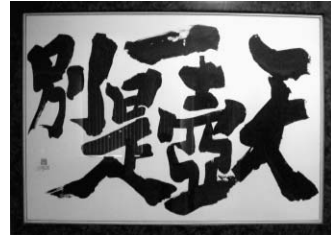 別是一壺天